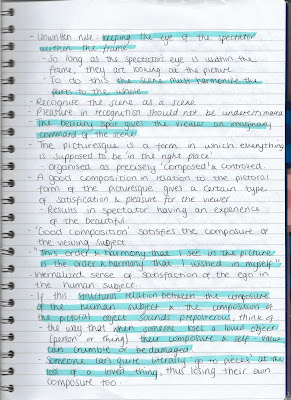 - Unwritten rule - keeping the eye of the spectator
within the frame
- So long as the spectators eye is within the
frame, they are looking at the picture
- To do this the scene must harmonize the
parts to the whole.
- Recognise the scene as a scene
- Pleasure in recognition should not be underestimated
The beauty spot gives the viewer an imaginary
command of the scene
- The picturesque is a form in which everything
is supposed to be in the right place
- organised as precisely 'composed' & controlled
- A good composition in relation to the pictorial
form of the picturesque gives a certain type
of satisfaction & pleasure for the viewer
- Results in spectator having an experience
of the beautiful
- 'Good composition' satisfies the composure of
the viewing subject
- 'This order & harmony that I see in the picture
is the order & harmony that I wished in myself'
- Internalized sense of 'satisfaction of the ego' in
the human subject.
- If this structural relation between the composure
of the human subject & the composition of
the pictorial object sounds preposterous, think of
- the way that when someone loses a loved object
(person or thing) their composure & self-value
can crumble or be damaged
- Someone can quite literally 'go to pieces' at the
loss of a loved thing, thus losing their own
composure too.